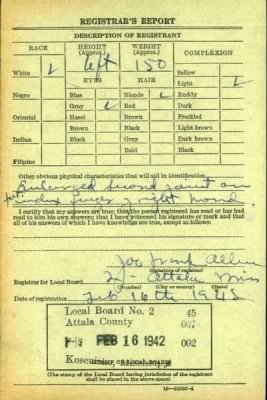 REGISTRAR'S REPORT
DESCRIPTION OF REGISTRANT
RACE HEIGHT (Approx.) WEIGHT (Approx.) COMPLEXION
6ft 150
White Sallow
EYES HAIR Light
Negro Blue Blonde Ruddy
Gray Red Dark
Oriental Hazel Brown Freckled
Brown Black Light brown
Indian Black Gray Dark brown
Bald Black
Filipino
Other obvious physical characteristics that will aid in identification
Enlarged second joint on
index finger of right hand
I certify that my answers are true; that the person registered has read or has had
read to him his own answers; that I have witnessed his signature or mark and that
all of his answers of which I have knowledge are true, except as follows:
Joe Frank Allen
(Signature of registrar)
Registrar for Local Board 2 - Attala Miss
(Number) (City or county) (State)
Date of registration Feb 16th 1942
Local Board No. 2 45
Attala County 007
FEB 16 1942 002
(STAMP OF LOCAL BOARD)
(The stamp of the Local Board having jurisdiction of the registrant
shall be placed in the above space)